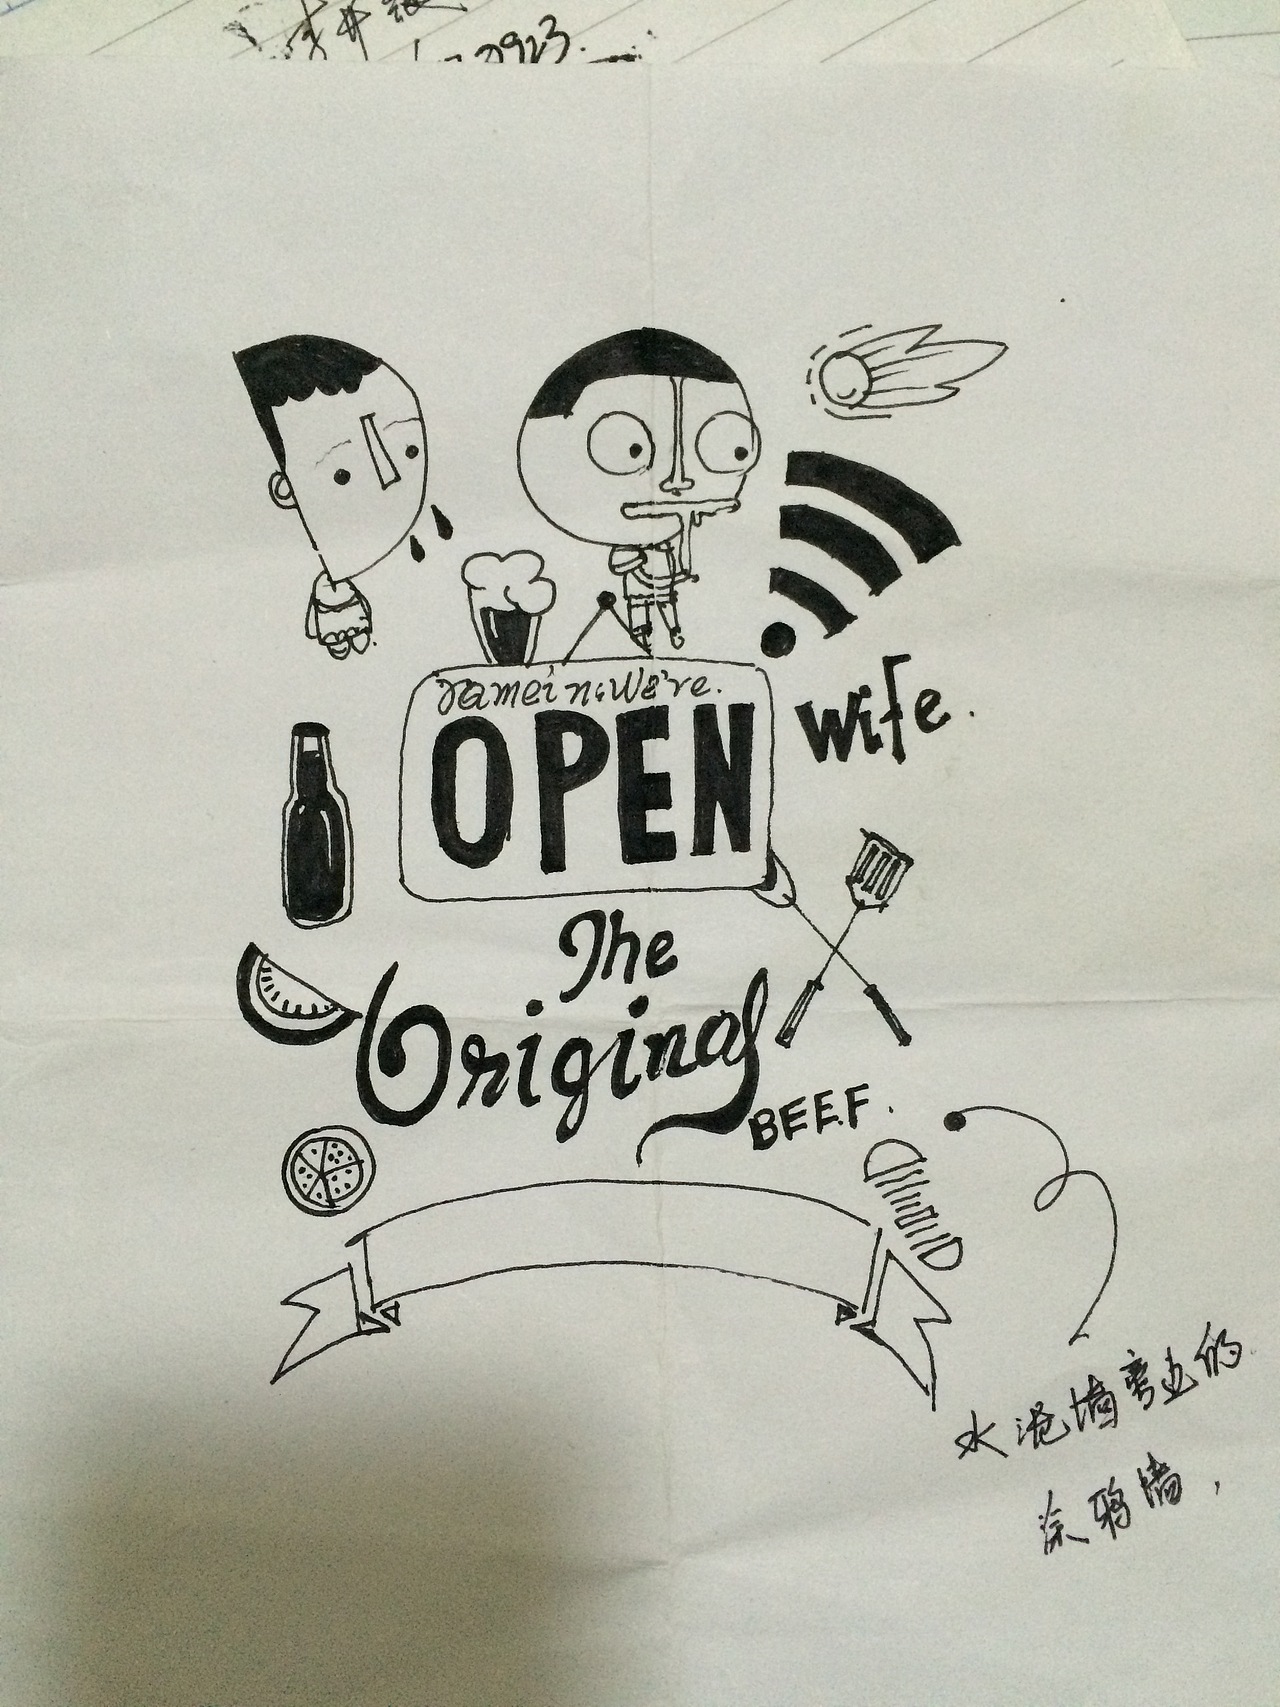 0923.
ramein:We're.
OPEN
wife.
The
Original
BEEF.
水泥墙弯边的
涂鸦墙,